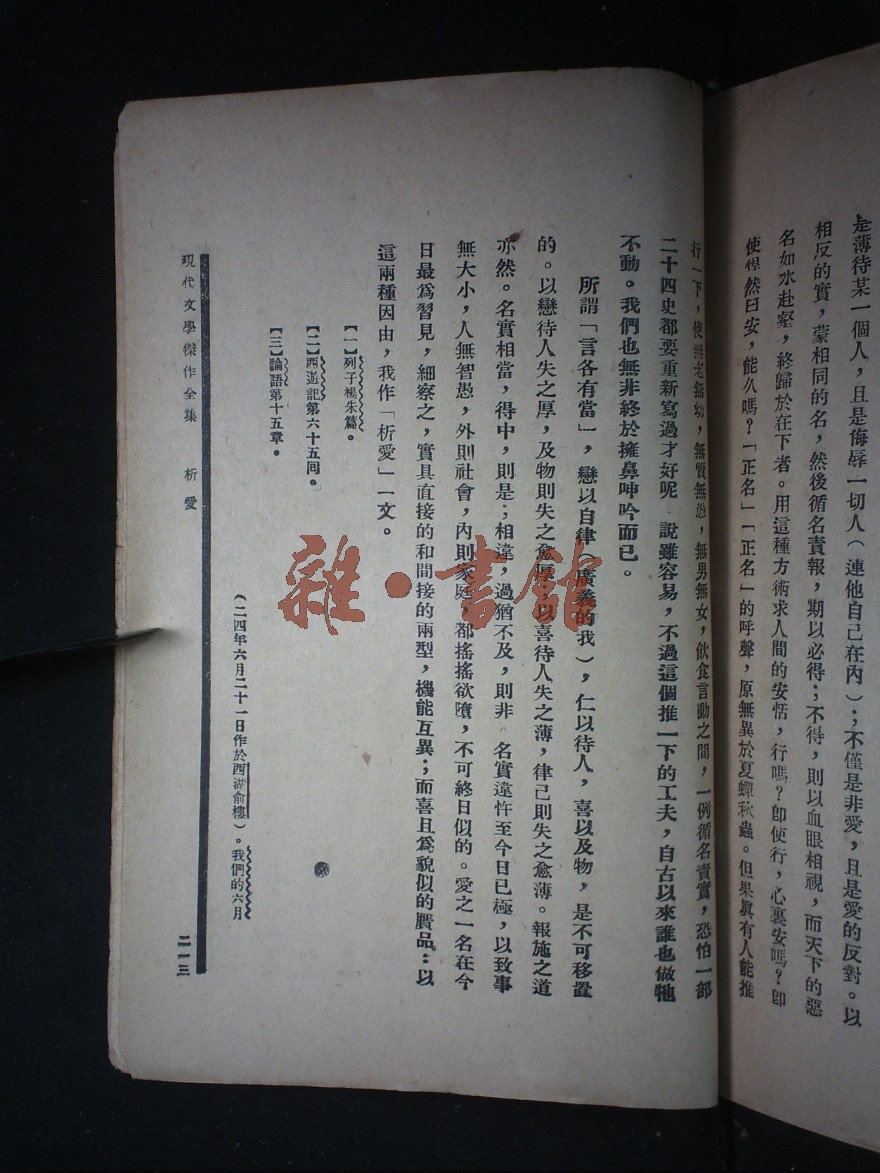 是薄待某一個人，且是侮辱一切人（連他自己在內）；不僅是非愛，且是愛的反對。以
相反的實，蒙相同的名，然後循名責報，期以必得；不得，則以血眼相視，而天下的惡
名如水赴壑，終歸於在下者。用這種方術求人間的安恬，行嗎？即使行，心裏安嗎？即
使悍然曰安，能久嗎？「正名」「正名」的呼聲，原無異於夏蟬秋蟲。但果真有人能推
行一下，使無老無幼，無賢無愚，無男無女，飲食言動之間，一例循名責實，恐怕一部
二十四史都要重新寫過才好呢 說雖容易，不過這個推一下的工夫，自古以來誰也做牠
不動。我們也無非終於擁鼻呻吟而已。
所謂「言各有當」，戀以自律（廣義的我），仁以待人，喜以及物，是不可移置
的。以戀待人失之厚，及物則失之愈厚；以喜待人失之薄，律己則失之愈薄。報施之道
亦然。名實相當，得中，則是；相違，過猶不及，則非。名實違忤至今日已極，以致事
無大小，人無智愚，外則社會，內則家庭，都搖搖欲墮，不可終日似的。愛之一名在今
日最爲習見，細察之，實具直接的和間接的兩型，機能互異；而喜且爲貌似的贋品：以
這兩種因由，我作「析愛」一文。
【一】列子楊朱篇。
【二】西遊記第六十五回。
【三】論語第十五章。
（二四年六月二十一日作於西湖俞樓）。我們的六月
現代文學傑作全集 析愛
二一三
雜·書館